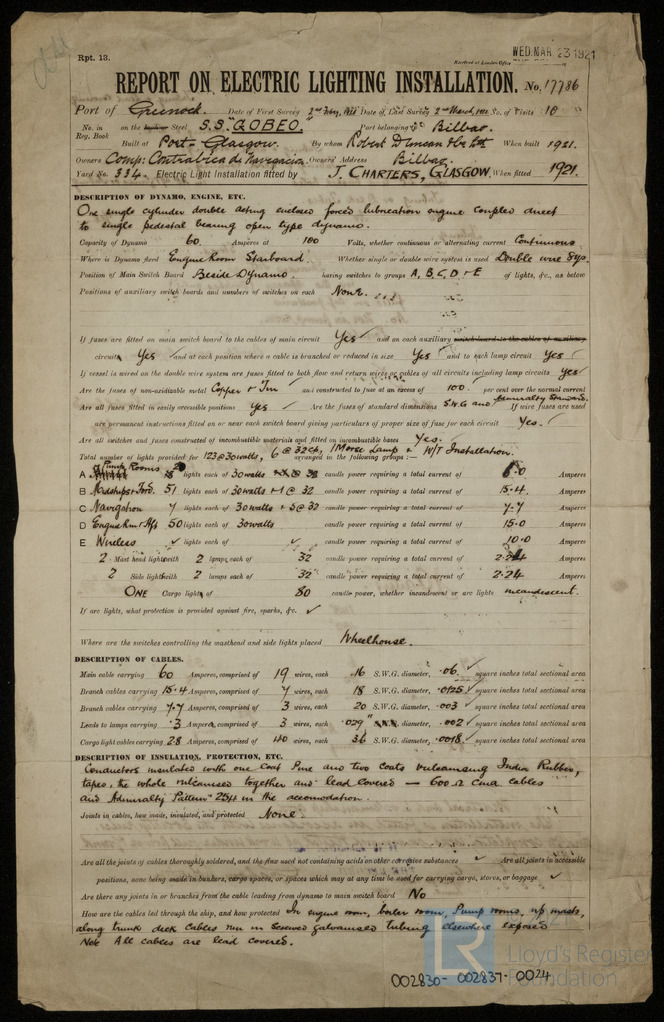 Rpt. 13.
Received at London Office
WED. MAR. 23 1921
REPORT ON ELECTRIC LIGHTING INSTALLATION. No. 17786
Port of Greenock. Date of First Survey 2nd Feby, Date of Last Survey 2nd March, No. of Visits 10
No. in Reg. Book on the Steel S.S. "GOBEO." Port belonging to Bilbao.
Built at Port-Glasgow. By whom Robert Duncan & Co Ltd When built 1921.
Owners Comp: Cantabrica de Navegacion Owners' Address Bilbao.
Yard No. 334. Electric Light Installation fitted by J. CHARTERS, GLASGOW. When fitted 1921.
DESCRIPTION OF DYNAMO, ENGINE, ETC.
One single cylinder double acting enclosed forced lubrication engine coupled direct
to single pedestal bearing open type dynamo.
Capacity of Dynamo 60 Amperes at 100 Volts, whether continuous or alternating current Continuous
Where is Dynamo fixed Engine Room Starboard. Whether single or double wire system is used Double wire Sys.
Position of Main Switch Board Beside Dynamo. having switches to groups A, B, C, D & E of lights, &c., as below
Positions of auxiliary switch boards and numbers of switches on each None.
If fuses are fitted on main switch board to the cables of main circuit Yes and on each auxiliary switch board to the cables of auxiliary
circuits Yes and at each position where a cable is branched or reduced in size Yes and to each lamp circuit Yes
If vessel is wired on the double wire system are fuses fitted to both flow and return wires or cables of all circuits including lamp circuits Yes
Are the fuses of non-oxidizable metal Copper & Tin and constructed to fuse at an excess of 100 per cent over the normal current
Are all fuses fitted in easily accessible positions Yes Are the fuses of standard dimensions S.W.G and Admiralty Standard. If wire fuses are used
are permanent instructions fitted on or near each switch board giving particulars of proper size of fuse for each circuit Yes.
Are all switches and fuses constructed of incombustible materials and fitted on incombustible bases Yes.
Total number of lights provided for 123 @ 30 watts, 6 @ 32 cp, 1 Morse Lamp & W/T Installation. arranged in the following groups :—
A Pump Rooms lights each of 30 watts candle power requiring a total current of 6.0 Amperes
B Midships & Ford. 51 lights each of 30 watts & 1 @ 32 candle power requiring a total current of 15.4. Amperes
C Navigation 7 lights each of 30 watts & 5 @ 32 candle power requiring a total current of 7.7 Amperes
D Engine Rm & Aft 50 lights each of 30 watts candle power requiring a total current of 15.0 Amperes
E Wireless ✓ lights each of ✓ candle power requiring a total current of 10.0 Amperes
2 Mast head light with 2 lamps each of 32 candle power requiring a total current of 2.24 Amperes
2 Side light with 2 lamps each of 32 candle power requiring a total current of 2.24 Amperes
ONE Cargo lights of 80 candle power, whether incandescent or arc lights incandescent.
If arc lights, what protection is provided against fire, sparks, &c. ✓
Where are the switches controlling the masthead and side lights placed Wheelhouse.
DESCRIPTION OF CABLES.
Main cable carrying 60 Amperes, comprised of 19 wires, each 16 S.W.G. diameter, .06 square inches total sectional area
Branch cables carrying 15.4 Amperes, comprised of 7 wires, each 18 S.W.G. diameter, .0125 square inches total sectional area
Branch cables carrying 7.7 Amperes, comprised of 3 wires, each 20 S.W.G. diameter, .003 square inches total sectional area
Leads to lamps carrying .3 Amperes, comprised of 3 wires, each .029" diameter, .002 square inches total sectional area
Cargo light cables carrying 2.8 Amperes, comprised of 140 wires, each 36 S.W.G. diameter, .0018 square inches total sectional area
DESCRIPTION OF INSULATION, PROTECTION, ETC.
Conductors insulated with one coat Pure and two coats vulcanising India Rubber,
tapes, the whole vulcanised together and lead covered — 600 Ω cma cables
and Admiralty Pattern 254 in the accomodation.
Joints in cables, how made, insulated, and protected None.
Are all the joints of cables thoroughly soldered, and the flux used not containing acids or other corrosive substances ✓ Are all joints in accessible
positions, none being made in bunkers, cargo spaces, or spaces which may at any time be used for carrying cargo, stores, or baggage ✓
Are there any joints in or branches from the cable leading from dynamo to main switch board No
How are the cables led through the ship, and how protected In engine room, boiler room, Pump rooms, up masts,
along trunk deck cables run in screwed galvanised tubing elsewhere exposed
Note All cables are lead covered.
LR Lloyd's Register Foundation
002830-002837-0024